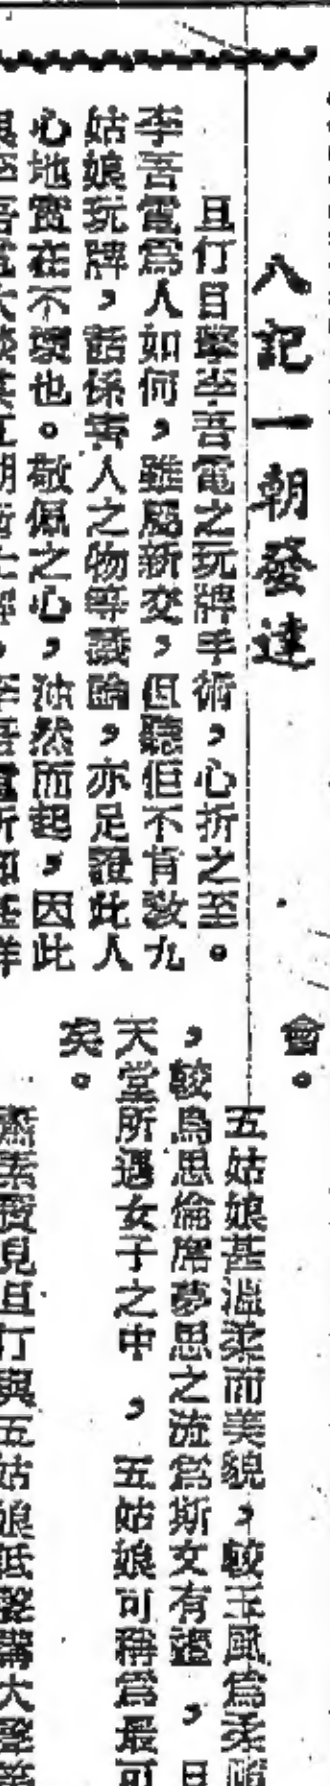 八記一朝發達
且仃目擊李吾電之玩牌手術，心折之至。
李吾電爲人如何，雖屬新交，但聽佢不肯敎九
姑娘玩牌，話係害人之物等議論，亦足證此人
心地實在不壞也。敬佩之心，油然而起，因此
會。
五姑娘甚溫柔而美貌，較玉鳳爲柔
，較鳥思倫席夢思之流爲斯文有禮，
天堂所遇女子之中，五姑娘可稱爲最可
矣。
蕭素貞見且仃與五姑娘低聲講大聲笑